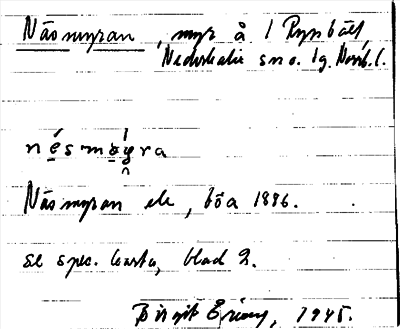 Näsmyran, myr å 1 Rynbäck,
Nederkalix sn o. lg. Norrb. l.
nésmøyra
Näsmyran ek, böa 1886.
se spec. karta, blad 2.
Birgit Ericny, 1945.